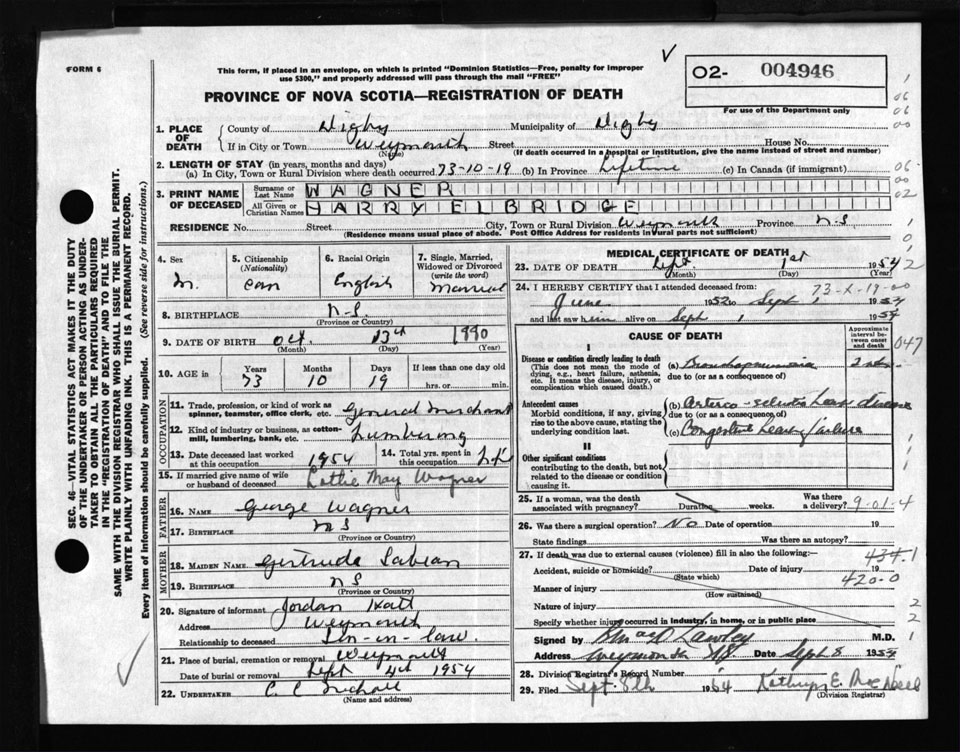 FORM 6
This form, if placed in an envelope, on which is printed "Dominion Statistics—Free, penalty for improper
use $300," and properly addressed will pass through the mail "FREE"
O2- 004946
For use of the Department only
PROVINCE OF NOVA SCOTIA—REGISTRATION OF DEATH
1. PLACE OF DEATH
County of Digby Municipality of Digby
If in City or Town Weymouth Street House No.
(Name) (If death occurred in a hospital or institution, give the name instead of street and number)
2. LENGTH OF STAY (in years, months and days)
(a) In City, Town or Rural Division where death occurred 73-10-19 (b) In Province Lifetime (c) In Canada (if immigrant)
3. PRINT NAME OF DECEASED
Surname or Last Name WAGNER
All Given or Christian Names HARRY ELBRIDGE
RESIDENCE No. Street City, Town or Rural Division Weymouth Province N-S
(Residence means usual place of abode. Post Office Address for residents in rural parts not sufficient)
4. Sex M.
5. Citizenship (Nationality) Can
6. Racial Origin English
7. Single, Married, Widowed or Divorced (write the word) Married
8. BIRTHPLACE N-S.
(Province or Country)
9. DATE OF BIRTH Oct. 13th
(Month) (Day) (Year)
10. AGE in Years Months Days If less than one day old
73 10 19 hrs. or min.
OCCUPATION
11. Trade, profession, or kind of work as spinner, teamster, office clerk, etc. General Merchant
12. Kind of industry or business, as cotton-mill, lumbering, bank, etc. Lumbering
13. Date deceased last worked at this occupation 1954
14. Total yrs. spent in this occupation
15. If married give name of wife or husband of deceased Lottie May Wagner
FATHER
16. Name George Wagner
17. Birthplace N S
(Province or Country)
MOTHER
18. MAIDEN NAME Gertrude
19. BIRTHPLACE N S
(Province or Country)
20. Signature of informant Jordan
Address Weymouth
Relationship to deceased Son-in-law.
21. Place of burial, cremation or removal Weymouth
Date of burial or removal Sept 4th 1954
22. UNDERTAKER C C
(Name and address)
MEDICAL CERTIFICATE OF DEATH
23. DATE OF DEATH Sept. 1st 1954
(Month) (Day) (Year)
73-X-19-00
24. I HEREBY CERTIFY that I attended deceased from:
June 1952 to Sept 1, 1954
and last saw him alive on Sept 1 1954
CAUSE OF DEATH
Approximate interval between onset and death
047
I
Disease or condition directly leading to death
(This does not mean the mode of dying, e.g., heart failure, asthenia, etc. It means the disease, injury, or complication which caused death.)
(a) Bronchopneumonia
due to (or as a consequence of)
Antecedent causes
Morbid conditions, if any, giving rise to the above cause, stating the underlying condition last.
(b) Arterio-sclerotic heart disease
due to (or as a consequence of)
(c) Congestive heart failure
II
Other significant conditions
contributing to the death, but not related to the disease or condition causing it.
25. If a woman, was the death associated with pregnancy? Duration weeks. Was there a delivery?
9-01-4
26. Was there a surgical operation? No Date of operation 19
State findings Was there an autopsy?
27. If death was due to external causes (violence) fill in also the following:—
434.1
Accident, suicide or homicide? Date of injury 19
(State which)
420-0
Manner of injury
(How sustained)
Nature of injury
Specify whether injury occurred in industry, in home, or in public place
Signed by Lawley M.D.
Address Weymouth N.S. Date Sept 8 1954
28. Division Registrar's Record Number
29. Filed Sept. 8th Kathryn E.
(Division Registrar)
SEC. 46—VITAL STATISTICS ACT MAKES IT THE DUTY
OF THE UNDERTAKER OR PERSON ACTING AS UNDER-
TAKER TO OBTAIN ALL THE PARTICULARS REQUIRED
IN THE "REGISTRATION OF DEATH" AND TO FILE THE
SAME WITH THE DIVISION REGISTRAR WHO SHALL ISSUE THE BURIAL PERMIT.
WRITE PLAINLY WITH UNFADING INK. THIS IS A PERMANENT RECORD.
Every item of information should be carefully supplied. (See reverse side for instructions.)